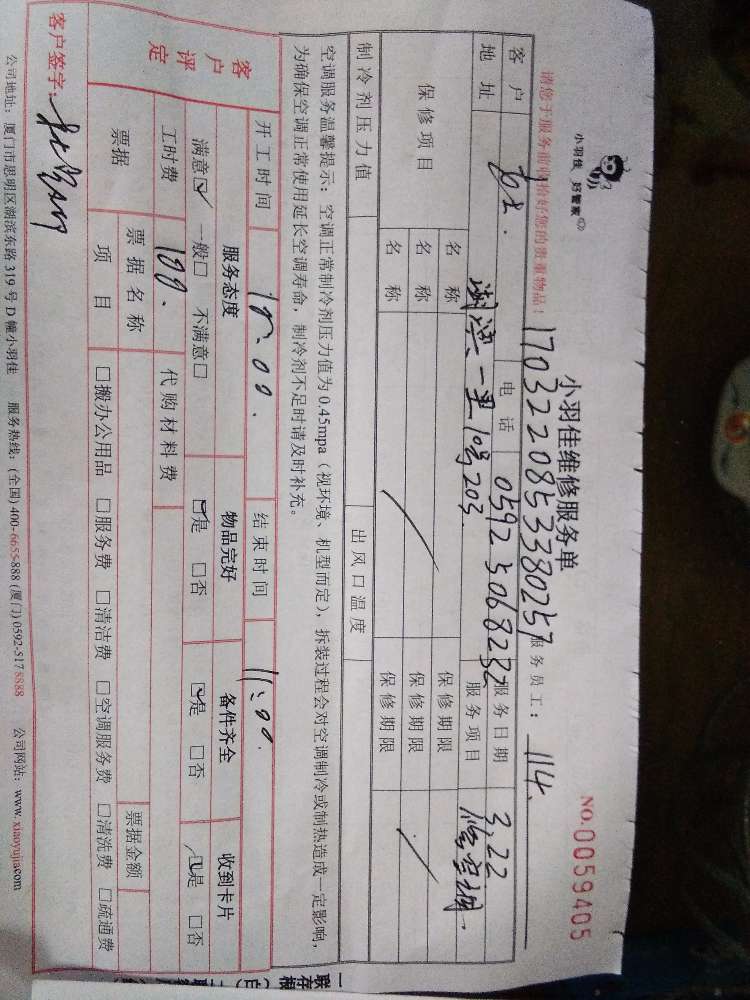 小羽佳 好管家
小羽佳维修服务单
NO.0059405
请您于服务前收拾好您的贵重物品！
170322085338025
服务员工： 114.
客户
电话 0592 5068232
服务日期 3.22
地址 一里10号203.
服务项目 修空调.
保修项目
名称
保修期限
名称
保修期限
名称
保修期限
制冷剂压力值
出风口温度
空调服务温馨提示：空调正常制冷剂压力值为 0.45mpa（视环境、机型而定），拆装过程会对空调制冷或制热造成一定影响，
为确保空调正常使用延长空调寿命，制冷剂不足时请及时补充。
开工时间 10:00.
结束时间 11:00.
客户评定
服务态度
物品完好
备件齐全
收到卡片
满意☑ 一般□ 不满意□
☑是 □否
☑是 □否
☑是 □否
工时费 100.
代购材料费
票据
票据名称
票据金额
项目 □搬办公用品 □服务费 □清洁费 □空调服务费 □清洗费 □疏通费
客户签字：
公司地址：厦门市思明区湖滨东路 319 号 D 幢小羽佳 服务热线：(全国) 400-6655-888 (厦门) 0592-5178888 公司网站：www.xiaoyujia.com